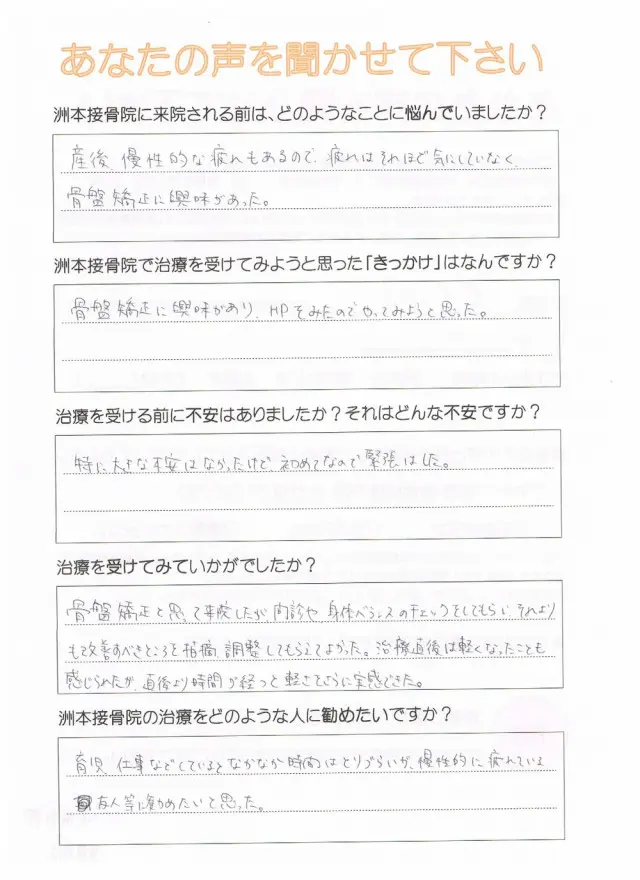 あなたの声を聞かせて下さい
洲本接骨院に来院される前は、どのようなことに悩んでいましたか？
産後、慢性的な疲れもあるので、疲れはそれほど気にしていなく、
骨盤矯正に興味があった。
洲本接骨院で治療を受けてみようと思った「きっかけ」はなんですか？
骨盤矯正に興味があり、HPをみたのでやってみようと思った。
治療を受ける前に不安はありましたか？それはどんな不安ですか？
特に大きな不安はなかったけど、初めてなので緊張はした。
治療を受けてみていかがでしたか？
骨盤矯正と思って来院したが、問診や、身体バランスのチェックをしてもらい、それより
もて改善すべきところを指摘、調整してもらえてよかった。治療直後は軽くなったことも
感じられたが、直後より時間が経つと軽さをさらに実感できた。
洲本接骨院の治療をどのような人に勧めたいですか？
育児、仕事などしているとなかなか時間はとりづらいが、慢性的に疲れている
友人等に勧めたいと思った。